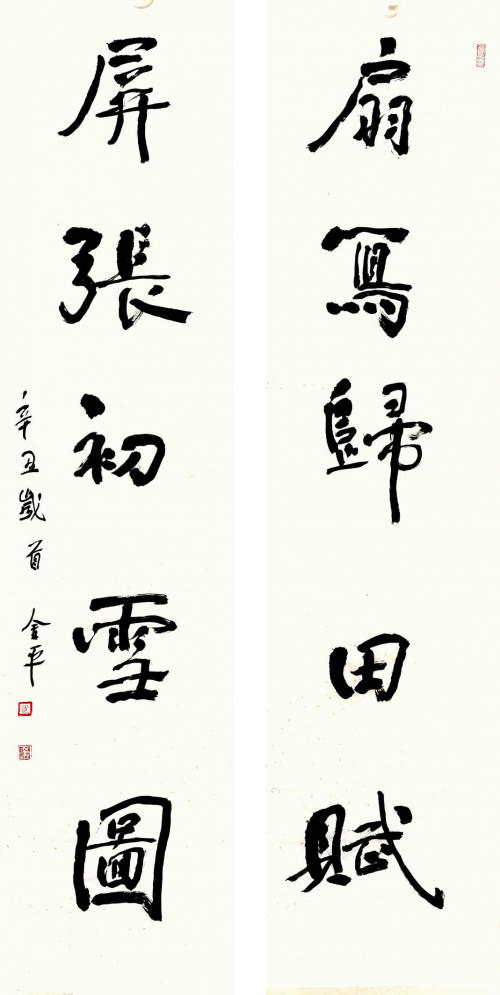 扇寫歸田賦
屏張初雪圖
辛丑歲首 金平